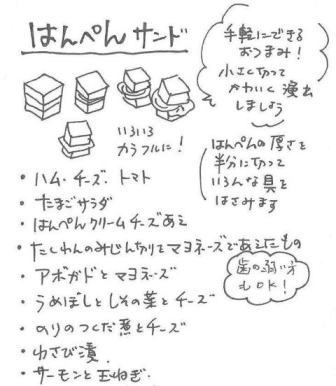 はんぺんサンド
手軽にできる
おつまみ!
小さく切って
かわいく演出
しましょう
いろいろ
カラフルに!
はんぺんの厚さを
半分に切って
いろんな具を
はさみます
・ハム・チーズ・トマト
・たまごサラダ
・はんぺんクリームチーズあえ
・たくわんのみじん切りとマヨネーズであえたもの
・アボガドとマヨネーズ
歯の弱い方
もOK!
・うめぼしとしその葉とチーズ
・のりのつくだ煮とチーズ
・わさび漬
・サーモンと玉ねぎ